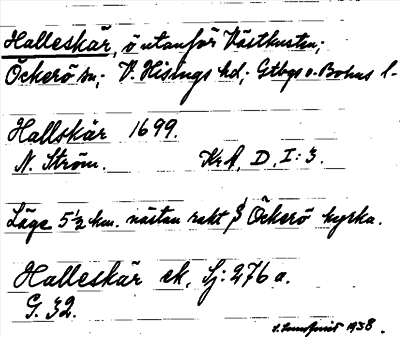 Halleskär, ö utanför Västkusten;
Öckerö sn; V. Hisings hd; Gtbgs o. Bohus l-
Hallskär 1699.
N. Ström. KrA, D, I:3.
Läge 5½ km. nästan rakt S Öckerö kyrka.
Halleskär ek, Sj: 276 a.
G. 32.
1938.